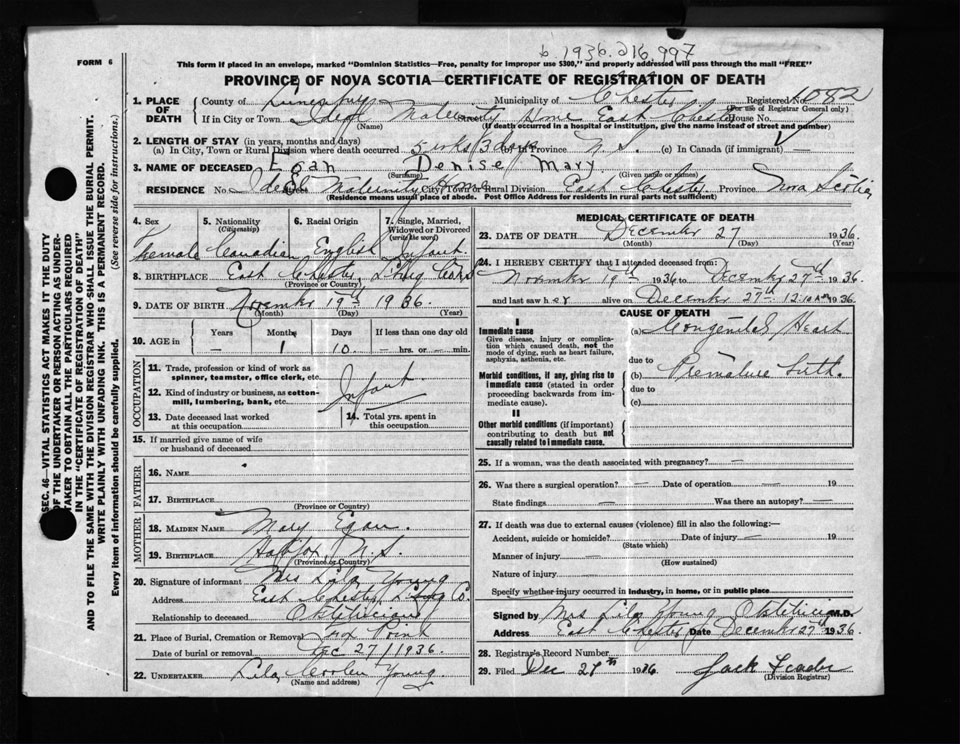 b 1936. 216.997
FORM 6
This form if placed in an envelope, marked "Dominion Statistics—Free, penalty for improper use $300," and properly addressed will pass through the mail "FREE"
PROVINCE OF NOVA SCOTIA—CERTIFICATE OF REGISTRATION OF DEATH
SEC. 46—VITAL STATISTICS ACT MAKES IT THE DUTY
OF THE UNDERTAKER OR PERSON ACTING AS UNDER-
TAKER TO OBTAIN ALL THE PARTICULARS REQUIRED
IN THE "CERTIFICATE OF REGISTRATION OF DEATH"
AND TO FILE THE SAME WITH THE DIVISION REGISTRAR WHO SHALL ISSUE THE BURIAL PERMIT.
WRITE PLAINLY WITH UNFADING INK. THIS IS A PERMANENT RECORD.
Every item of information should be carefully supplied. (See reverse side for instructions.)
1. PLACE OF DEATH
County of Lunenburg Municipality of Chester Registered No. 4082
(For use of Registrar General only)
If in City or Town Ideal Maternity Home East Chester House No.
(Name) (If death occurred in a hospital or institution, give the name instead of street and number)
2. LENGTH OF STAY (in years, months and days)
(a) In City, Town or Rural Division where death occurred 5 wks 3 days (b) In Province N. S. (c) In Canada (if immigrant) —
3. NAME OF DECEASED Egan Denise Mary
(Surname) (Given name or names)
RESIDENCE No. Ideal Maternity Home City, Town or Rural Division East Chester. Province Nova Scotia
(Residence means usual place of abode. Post Office Address for residents in rural parts not sufficient)
4. Sex
5. Nationality (Citizenship)
6. Racial Origin
7. Single, Married, Widowed or Divorced (write the word)
Female Canadian English Infant
8. BIRTHPLACE East Chester, L'burg
(Province or Country)
9. DATE OF BIRTH November 19th 1936.
(Month) (Day) (Year)
10. AGE in
Years Months Days If less than one day old
— 1 10 — hrs. or — min.
OCCUPATION
11. Trade, profession or kind of work as spinner, teamster, office clerk, etc.
12. Kind of industry or business, as cotton-mill, lumbering, bank, etc.
Infant.
13. Date deceased last worked at this occupation
14. Total yrs. spent in this occupation
15. If married give name of wife or husband of deceased
FATHER
16. NAME
17. BIRTHPLACE
(Province or Country)
MOTHER
18. MAIDEN NAME Mary Egan.
19. BIRTHPLACE Halifax, N. S.
(Province or Country)
20. Signature of informant Mrs Lila Young
Address East Chester L'burg Co.
Relationship to deceased Obstetrician
21. Place of Burial, Cremation or Removal Fox Point
Date of burial or removal Dec 27/1936.
22. UNDERTAKER Lila Young.
(Name and address)
MEDICAL CERTIFICATE OF DEATH
23. DATE OF DEATH December 27 1936
(Month) (Day) (Year)
24. I HEREBY CERTIFY that I attended deceased from:
November 19th 1936 to December 27th 1936
and last saw her alive on December 27th 12.10 AM 1936.
CAUSE OF DEATH
I
Immediate cause
Give disease, injury or complication which caused death, not the mode of dying, such as heart failure, asphyxia, asthenia, etc.
(a) Congenital Heart
due to
Morbid conditions, if any, giving rise to immediate cause (stated in order proceeding backwards from immediate cause).
(b) Premature birth.
due to
(c)
II
Other morbid conditions (if important) contributing to death but not causally related to immediate cause.
25. If a woman, was the death associated with pregnancy? —
26. Was there a surgical operation? — Date of operation — 19
State findings — Was there an autopsy? —
27. If death was due to external causes (violence) fill in also the following:—
Accident, suicide or homicide? Date of injury — 19
(State which)
Manner of injury —
(How sustained)
Nature of injury —
Specify whether injury occurred in industry, in home, or in public place
Signed by Mrs Lila Young Obstetrician M.D.
Address East Chester Date December 27th 1936.
28. Registrar's Record Number
29. Filed Dec 1936
(Division Registrar)